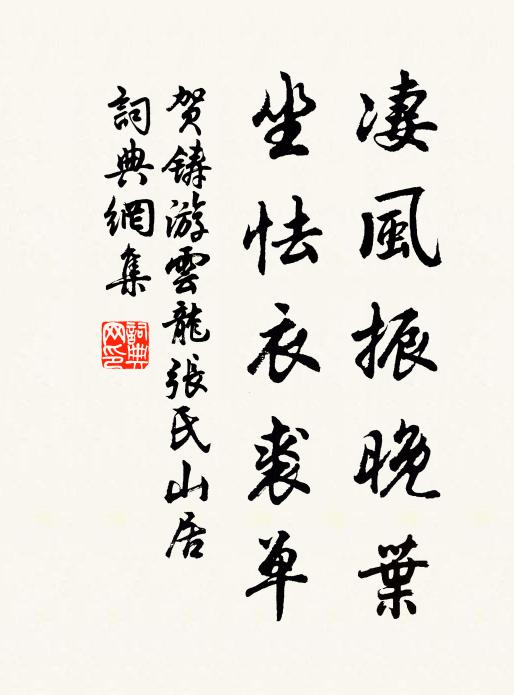 凄風振晚葉
坐怯衣裘单
贺鑄游雲龍張氏山居
詞典網集
詞典网印